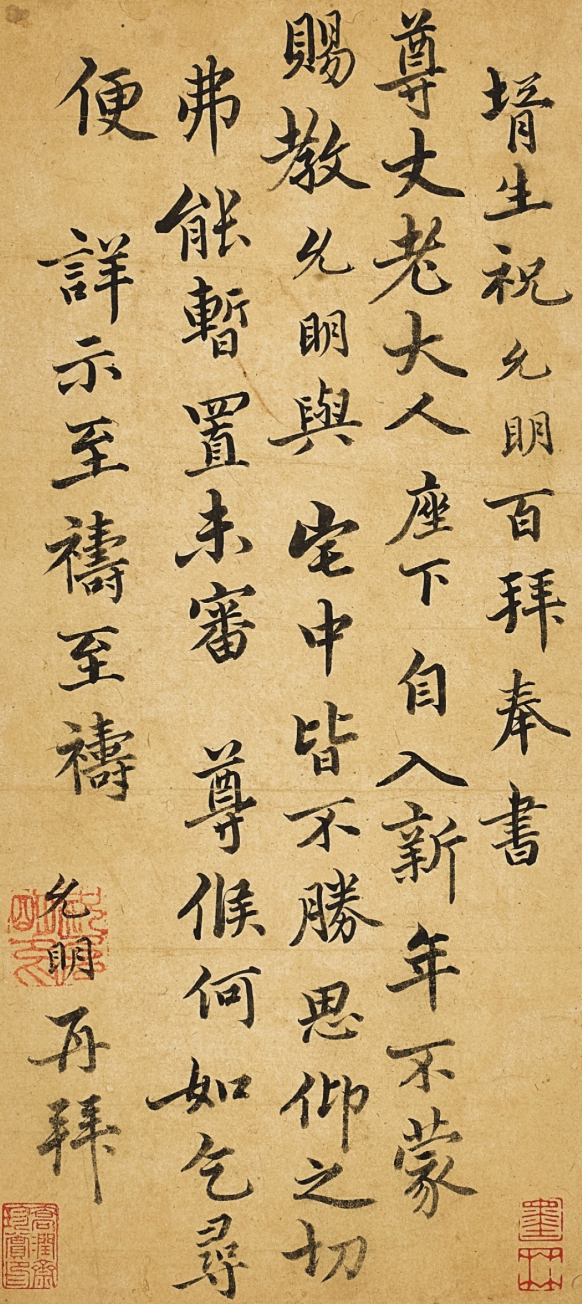 壻生祝允明百拜奉書
尊丈老大人座下自入新年不蒙
賜教允明與宅中皆不勝思仰之切
弗能暫置未審 尊候何如乞尋
便 詳示至禱至禱
允明再拜